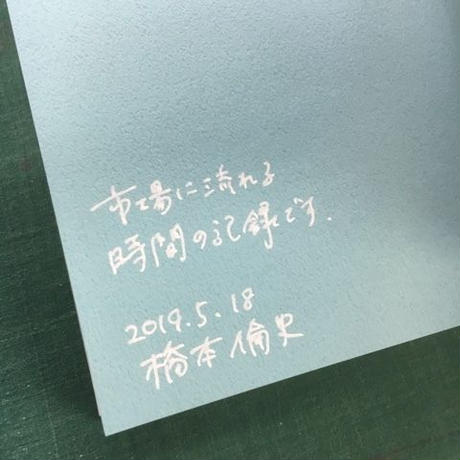 市場に流れる
時間の記録です.
2019.5.18
橋本倫史